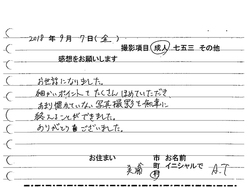 2018年 9月 7日(金)
撮影項目 成人 七五三 その他
感想をお願いします
お世話になりました。
細かいポイントでたくさんほめていただき、
あまり慣れていない写真撮影を無事に
終えることができました。
ありがとうございました。
お住まい 美浦 市 町 村 お名前 イニシャルで A.T